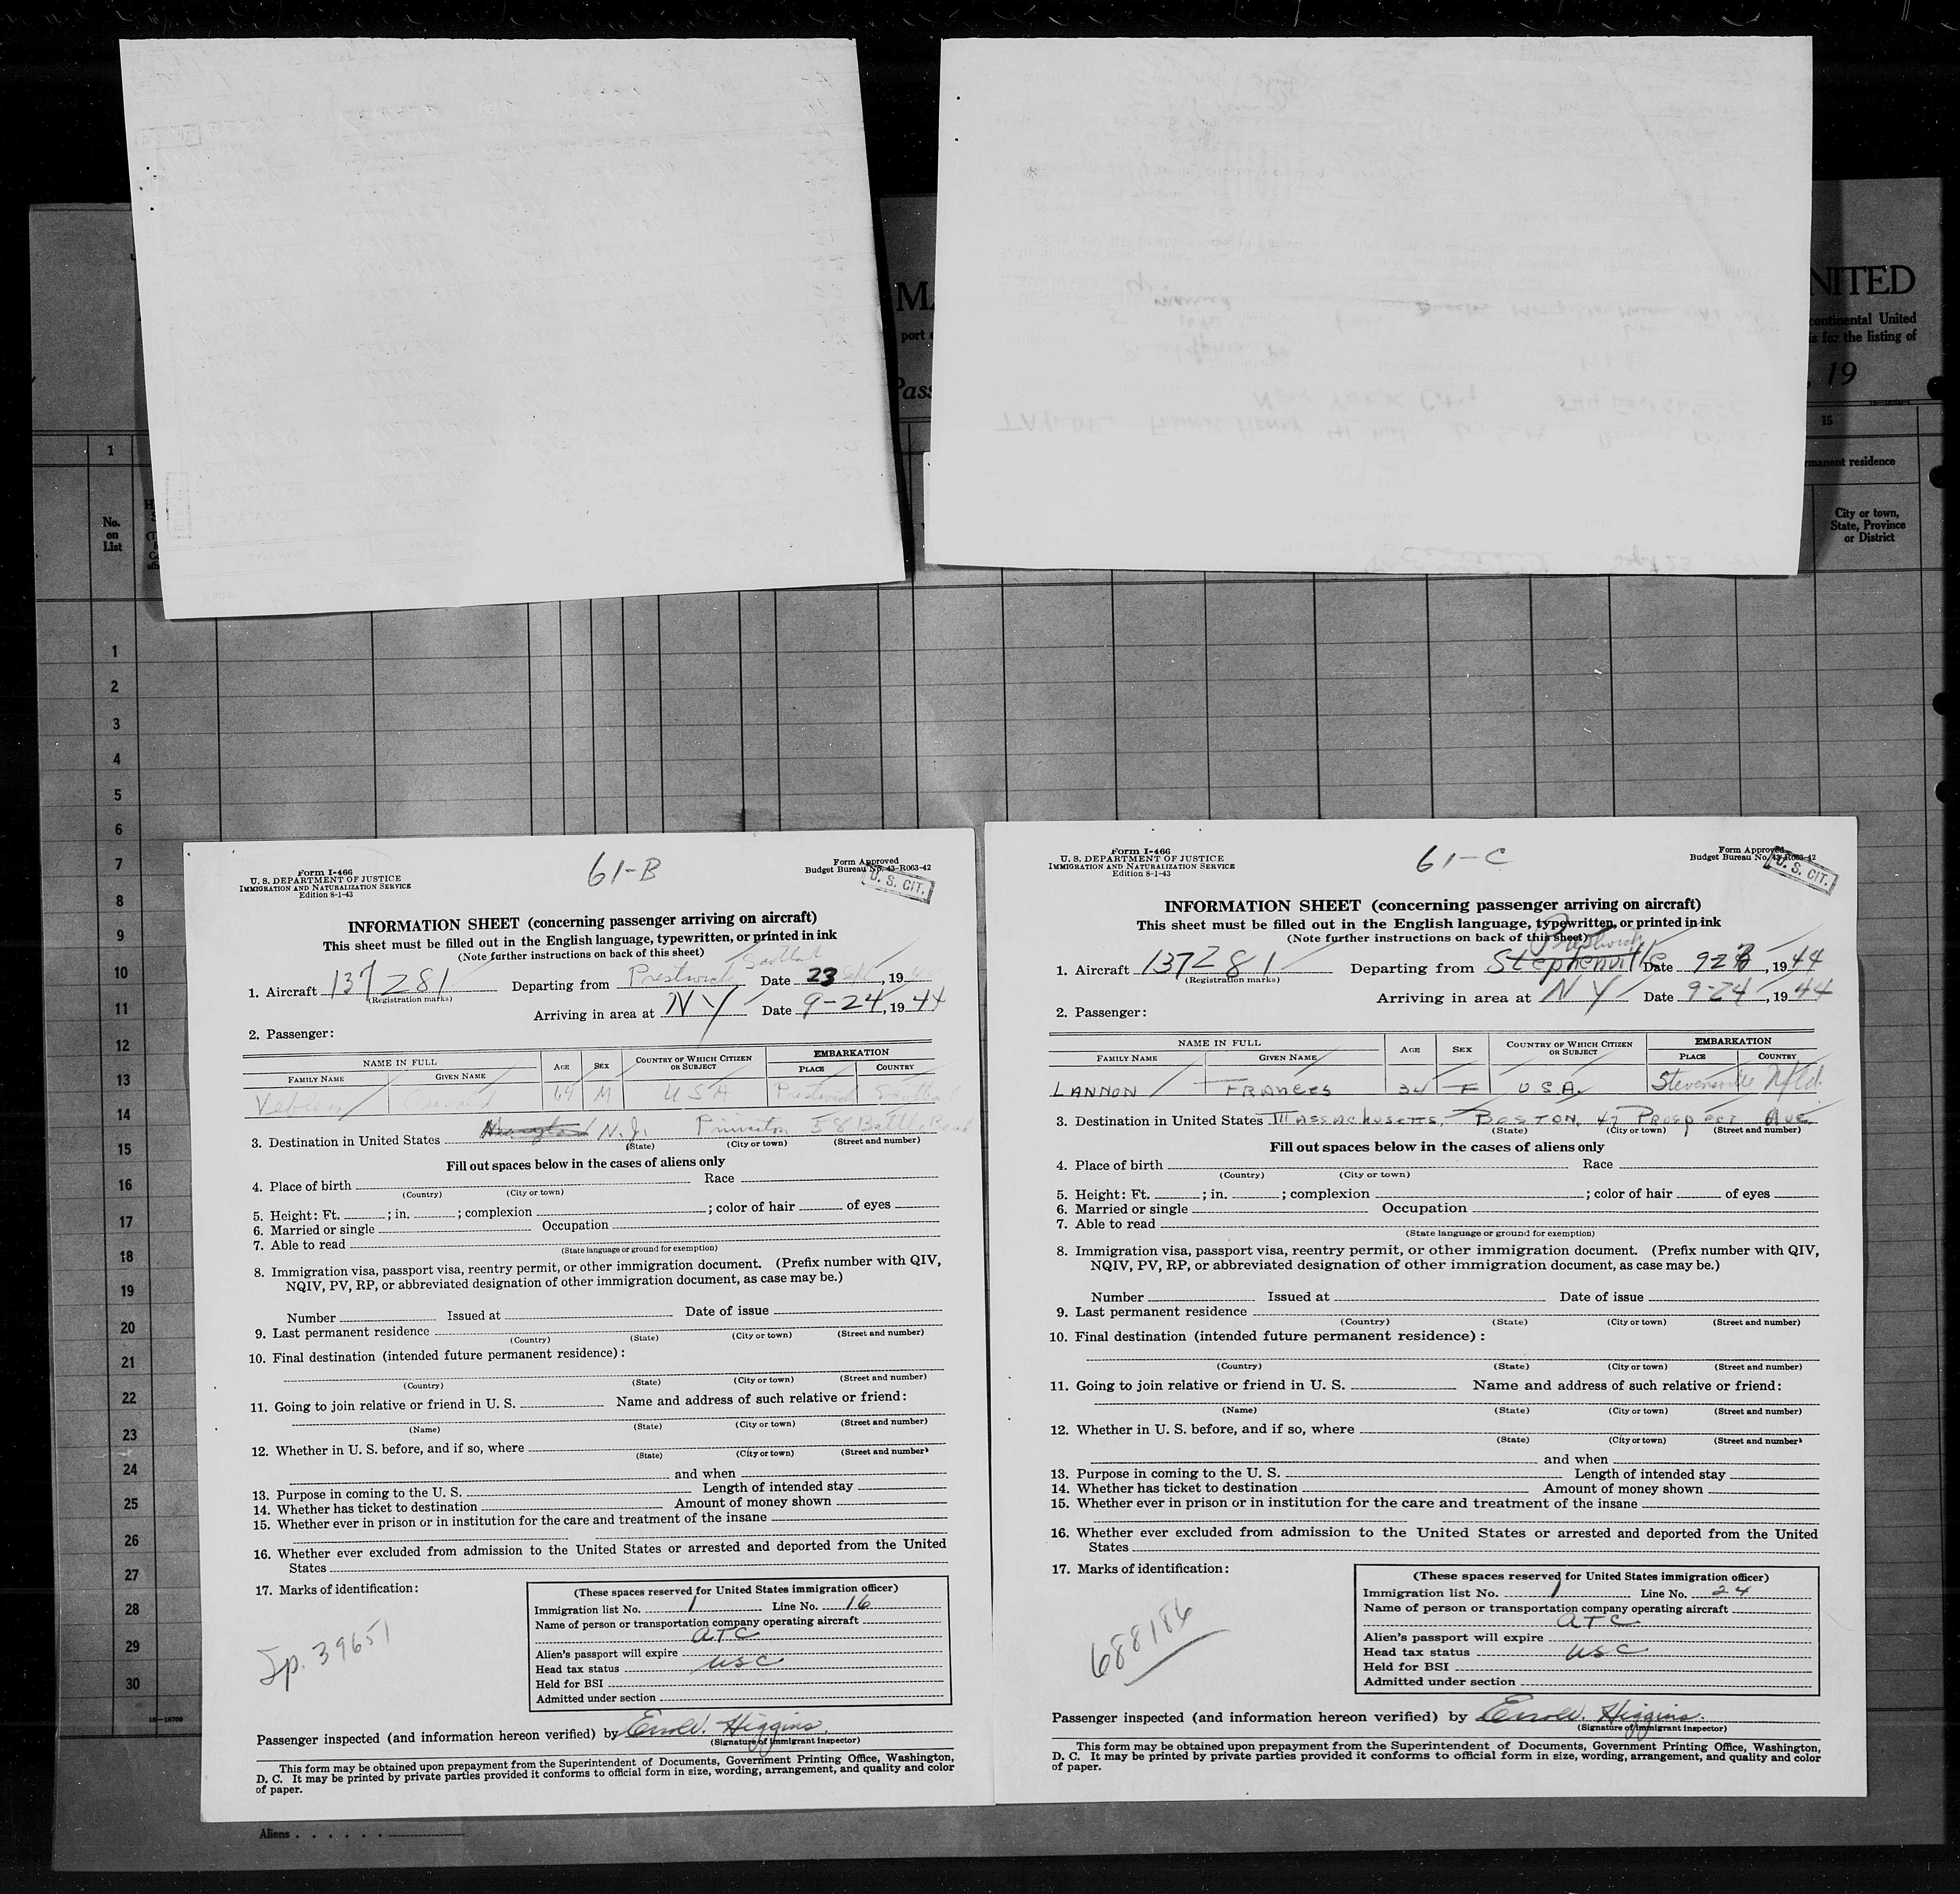 NITED
continental United
is for the listing of
19
15
1
manent residence
No.
on
List
City or town,
State, Province
or District
1
2
3
4
5
6
7
8
9
10
11
12
13
14
15
16
17
18
19
20
21
22
23
24
25
26
27
28
29
30
16—18709
Aliens
61-B
Form I-466
U. S. DEPARTMENT OF JUSTICE
IMMIGRATION AND NATURALIZATION SERVICE
Edition 8-1-43
Form Approved
Budget Bureau No. 43-R063-42
U. S. CIT.
INFORMATION SHEET (concerning passenger arriving on aircraft)
This sheet must be filled out in the English language, typewritten, or printed in ink
(Note further instructions on back of this sheet)
1. Aircraft 137281 Departing from Prestwick Scotland Date 23 , 19
(Registration marks)
Arriving in area at NY Date 9-24, 1944
2. Passenger:
NAME IN FULL AGE SEX COUNTRY OF WHICH CITIZEN OR SUBJECT EMBARKATION
FAMILY NAME GIVEN NAME PLACE COUNTRY
Veblen Oswald 64 M USA Prestwick Scotland
3. Destination in United States N.J. Princeton 58 Battle Road
(State) (City or town) (Street and number)
Fill out spaces below in the cases of aliens only
4. Place of birth Race
(Country) (City or town)
5. Height: Ft. ; in. ; complexion ; color of hair of eyes
6. Married or single Occupation
7. Able to read
(State language or ground for exemption)
8. Immigration visa, passport visa, reentry permit, or other immigration document. (Prefix number with QIV,
NQIV, PV, RP, or abbreviated designation of other immigration document, as case may be.)
Number Issued at Date of issue
9. Last permanent residence
(Country) (State) (City or town) (Street and number)
10. Final destination (intended future permanent residence):
(Country) (State) (City or town) (Street and number)
11. Going to join relative or friend in U. S. Name and address of such relative or friend:
(Name) (State) (City or town) (Street and number)
12. Whether in U. S. before, and if so, where
(State) (City or town) (Street and number)
and when
13. Purpose in coming to the U. S. Length of intended stay
14. Whether has ticket to destination Amount of money shown
15. Whether ever in prison or in institution for the care and treatment of the insane
16. Whether ever excluded from admission to the United States or arrested and deported from the United
States
17. Marks of identification:
Sp. 39651
(These spaces reserved for United States immigration officer)
Immigration list No. 1 Line No. 16
Name of person or transportation company operating aircraft
ATC
Alien's passport will expire
Head tax status USC
Held for BSI
Admitted under section
Passenger inspected (and information hereon verified) by Errol W. Higgins
(Signature of immigrant inspector)
This form may be obtained upon prepayment from the Superintendent of Documents, Government Printing Office, Washington,
D. C. It may be printed by private parties provided it conforms to official form in size, wording, arrangement, and quality and color
of paper.
61-C
Form I-466
U. S. DEPARTMENT OF JUSTICE
IMMIGRATION AND NATURALIZATION SERVICE
Edition 8-1-43
Form Approved
Budget Bureau No. 43-R063-42
U. S. CIT.
INFORMATION SHEET (concerning passenger arriving on aircraft)
This sheet must be filled out in the English language, typewritten, or printed in ink
(Note further instructions on back of this sheet)
Prestwick
1. Aircraft 137281 Departing from Stephenville Date 9 23, 1944
(Registration marks)
Arriving in area at NY Date 9-24, 1944
2. Passenger:
NAME IN FULL AGE SEX COUNTRY OF WHICH CITIZEN OR SUBJECT EMBARKATION
FAMILY NAME GIVEN NAME PLACE COUNTRY
LANNON FRANCES 34 F U.S.A. Stevensville Nfld.
3. Destination in United States MASSACHUSETTS, BOSTON, 47 PROSPECT AVE
(State) (City or town) (Street and number)
Fill out spaces below in the cases of aliens only
4. Place of birth Race
(Country) (City or town)
5. Height: Ft. ; in. ; complexion ; color of hair of eyes
6. Married or single Occupation
7. Able to read
(State language or ground for exemption)
8. Immigration visa, passport visa, reentry permit, or other immigration document. (Prefix number with QIV,
NQIV, PV, RP, or abbreviated designation of other immigration document, as case may be.)
Number Issued at Date of issue
9. Last permanent residence
(Country) (State) (City or town) (Street and number)
10. Final destination (intended future permanent residence):
(Country) (State) (City or town) (Street and number)
11. Going to join relative or friend in U. S. Name and address of such relative or friend:
(Name) (State) (City or town) (Street and number)
12. Whether in U. S. before, and if so, where
(State) (City or town) (Street and number)
and when
13. Purpose in coming to the U. S. Length of intended stay
14. Whether has ticket to destination Amount of money shown
15. Whether ever in prison or in institution for the care and treatment of the insane
16. Whether ever excluded from admission to the United States or arrested and deported from the United
States
17. Marks of identification:
688186
(These spaces reserved for United States immigration officer)
Immigration list No. 1 Line No. 24
Name of person or transportation company operating aircraft
ATC
Alien's passport will expire
Head tax status USC
Held for BSI
Admitted under section
Passenger inspected (and information hereon verified) by Errol W. Higgins.
(Signature of immigrant inspector)
This form may be obtained upon prepayment from the Superintendent of Documents, Government Printing Office, Washington,
D. C. It may be printed by private parties provided it conforms to official form in size, wording, arrangement, and quality and color
of paper.